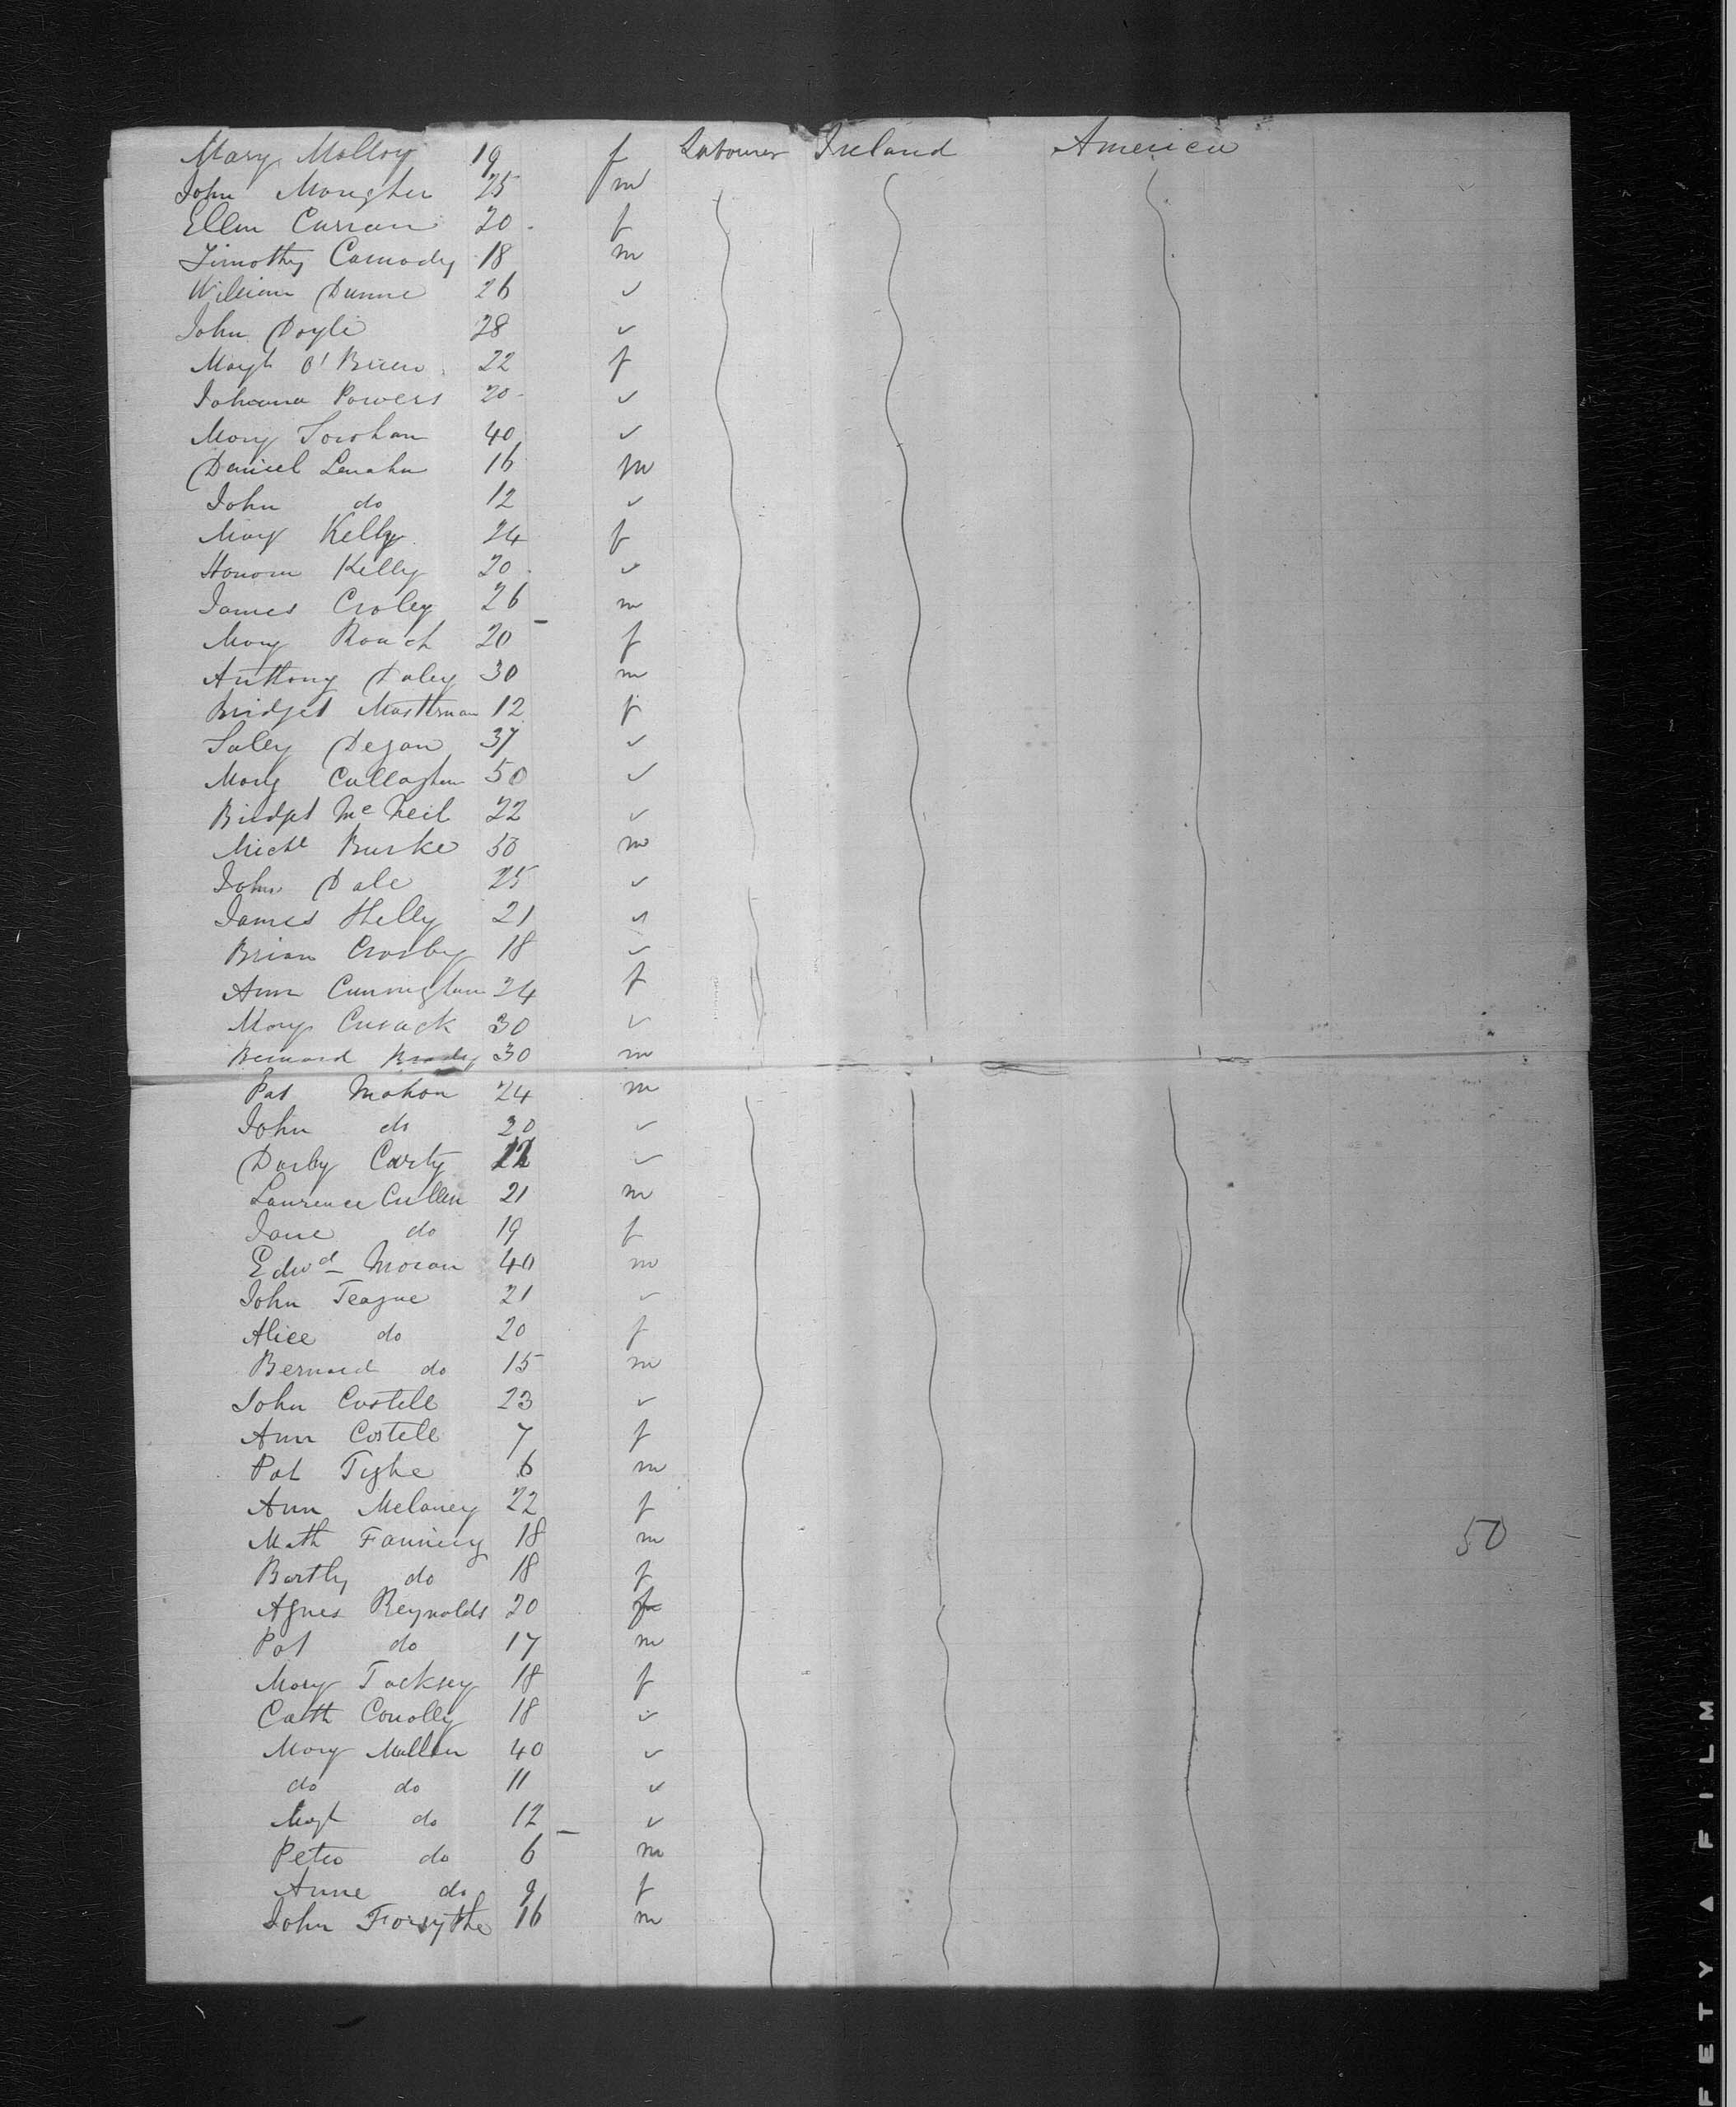 Mary Molloy 19 f Labourer Ireland America
John Maugher 25 m
Ellen Curran 20 f
Timothy Camody 18 m
William Dunne 26 ✓
John Doyle 28 ✓
Margt O'Brien 22 f
Johanna Powers 20 ✓
Mary 40 ✓
Daniel Lenahan 16 m
John do 12 ✓
Mary Kelly 24 f
Honora Kelly 20 ✓
James Croley 26 m
Mary Roach 20 f
Anthony Daley 30 m
Bridget Masterman 12 f
Saley Degan 37 ✓
Mary Callaghan 50 ✓
Bridget McNeil 22 ✓
Michl Burke 50 m
John Dale 25 ✓
James Helly 21 ✓
Brian Crosby 18 ✓
Ann Cunningham 24 f
Mary Cusack 30 ✓
Bernard Brady 30 m
Pat Mahon 24 m
John do 20 ✓
Darby Carty 22 ✓
Laurence Cullen 21 m
Jane do 19 f
Edwd Moran 40 m
John Teague 21 ✓
Alice do 20 f
Bernard do 15 m
John Costell 23 ✓
Ann Costell 7 f
Pat Tighe 6 m
Ann Melaney 22 f
Math Fanning 18 m 50
Bartly do 18 f
Agnes Reynolds 20 f
Pat do 17 m
Mary 18 f
Cath Conolly 18 ✓
Mary Mullen 40 ✓
do do 11 ✓
Magt do 12 ✓
Peter do 6 m
Anne do 9 f
John Forsythe 16 m
SAFETY ▲ FILM